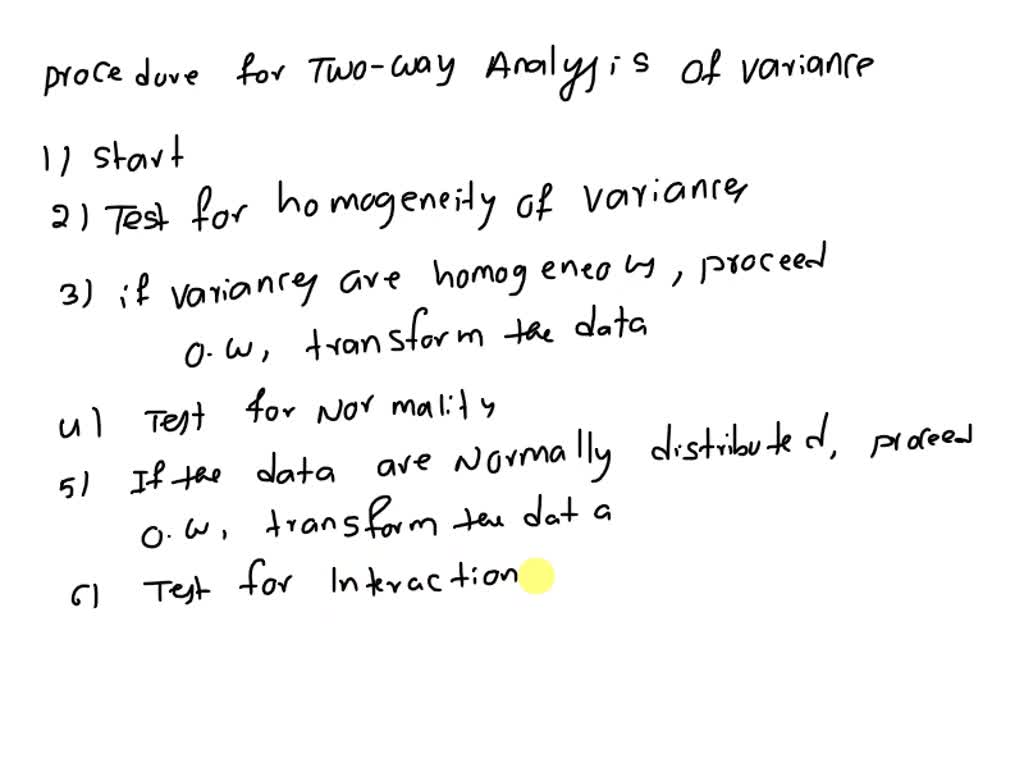 procedure for Two-way Analysis of variance
1) start
2) Test for homogeneity of variances
3) if variances are homogeneous, proceed
O.W, transform the data
4) Test for Normality
5) If the data are Normally distributed, proceed
O.W, transform the data
6) Test for Interaction